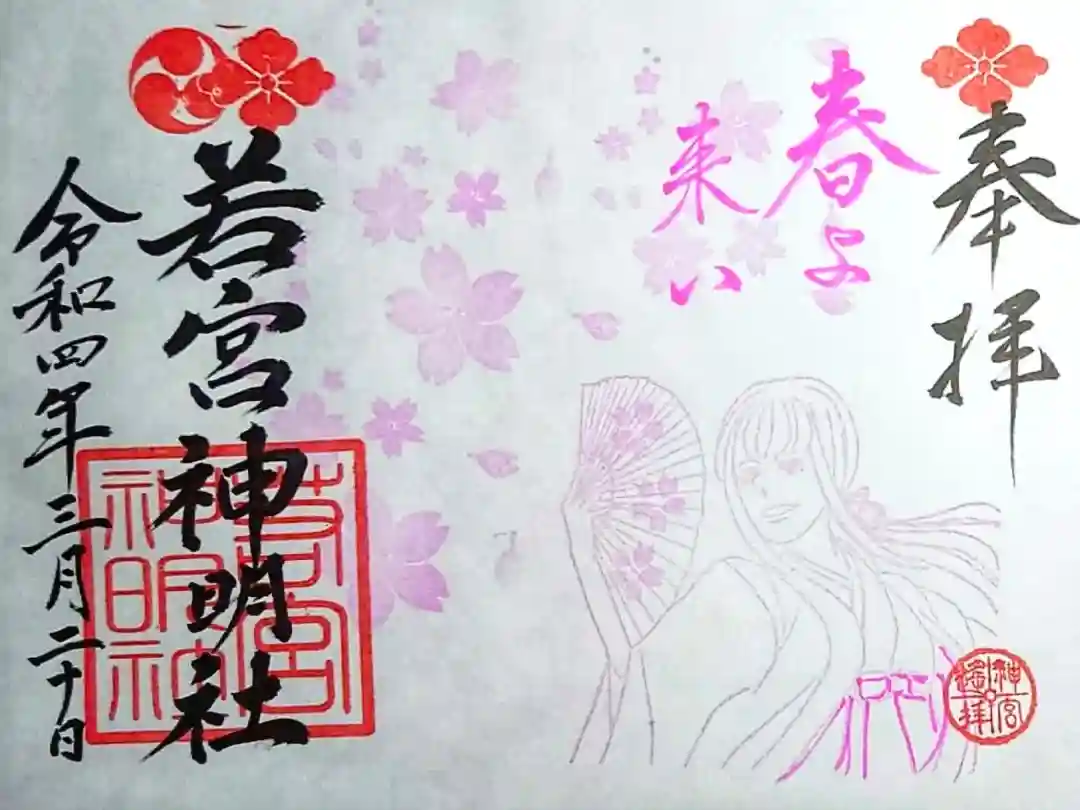 奉拝
春よ
来い
若宮神明社
令和四年三月二十日
若宮
神明社
神宮
遥拝